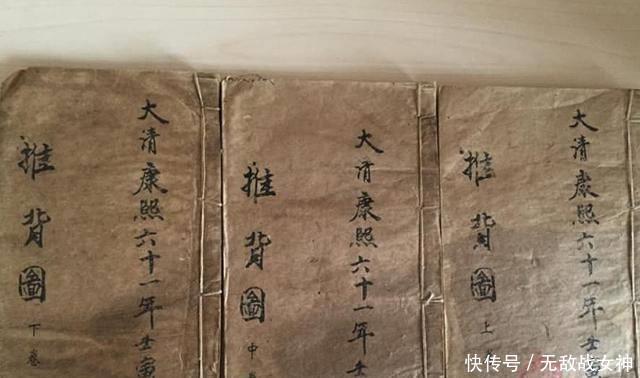 大清康熙六十一年壬
推背圖 上
大清康熙六十一年壬
推背圖 中
大清康熙六十一年壬寅
推背圖 下卷
快传号/无敌战女神